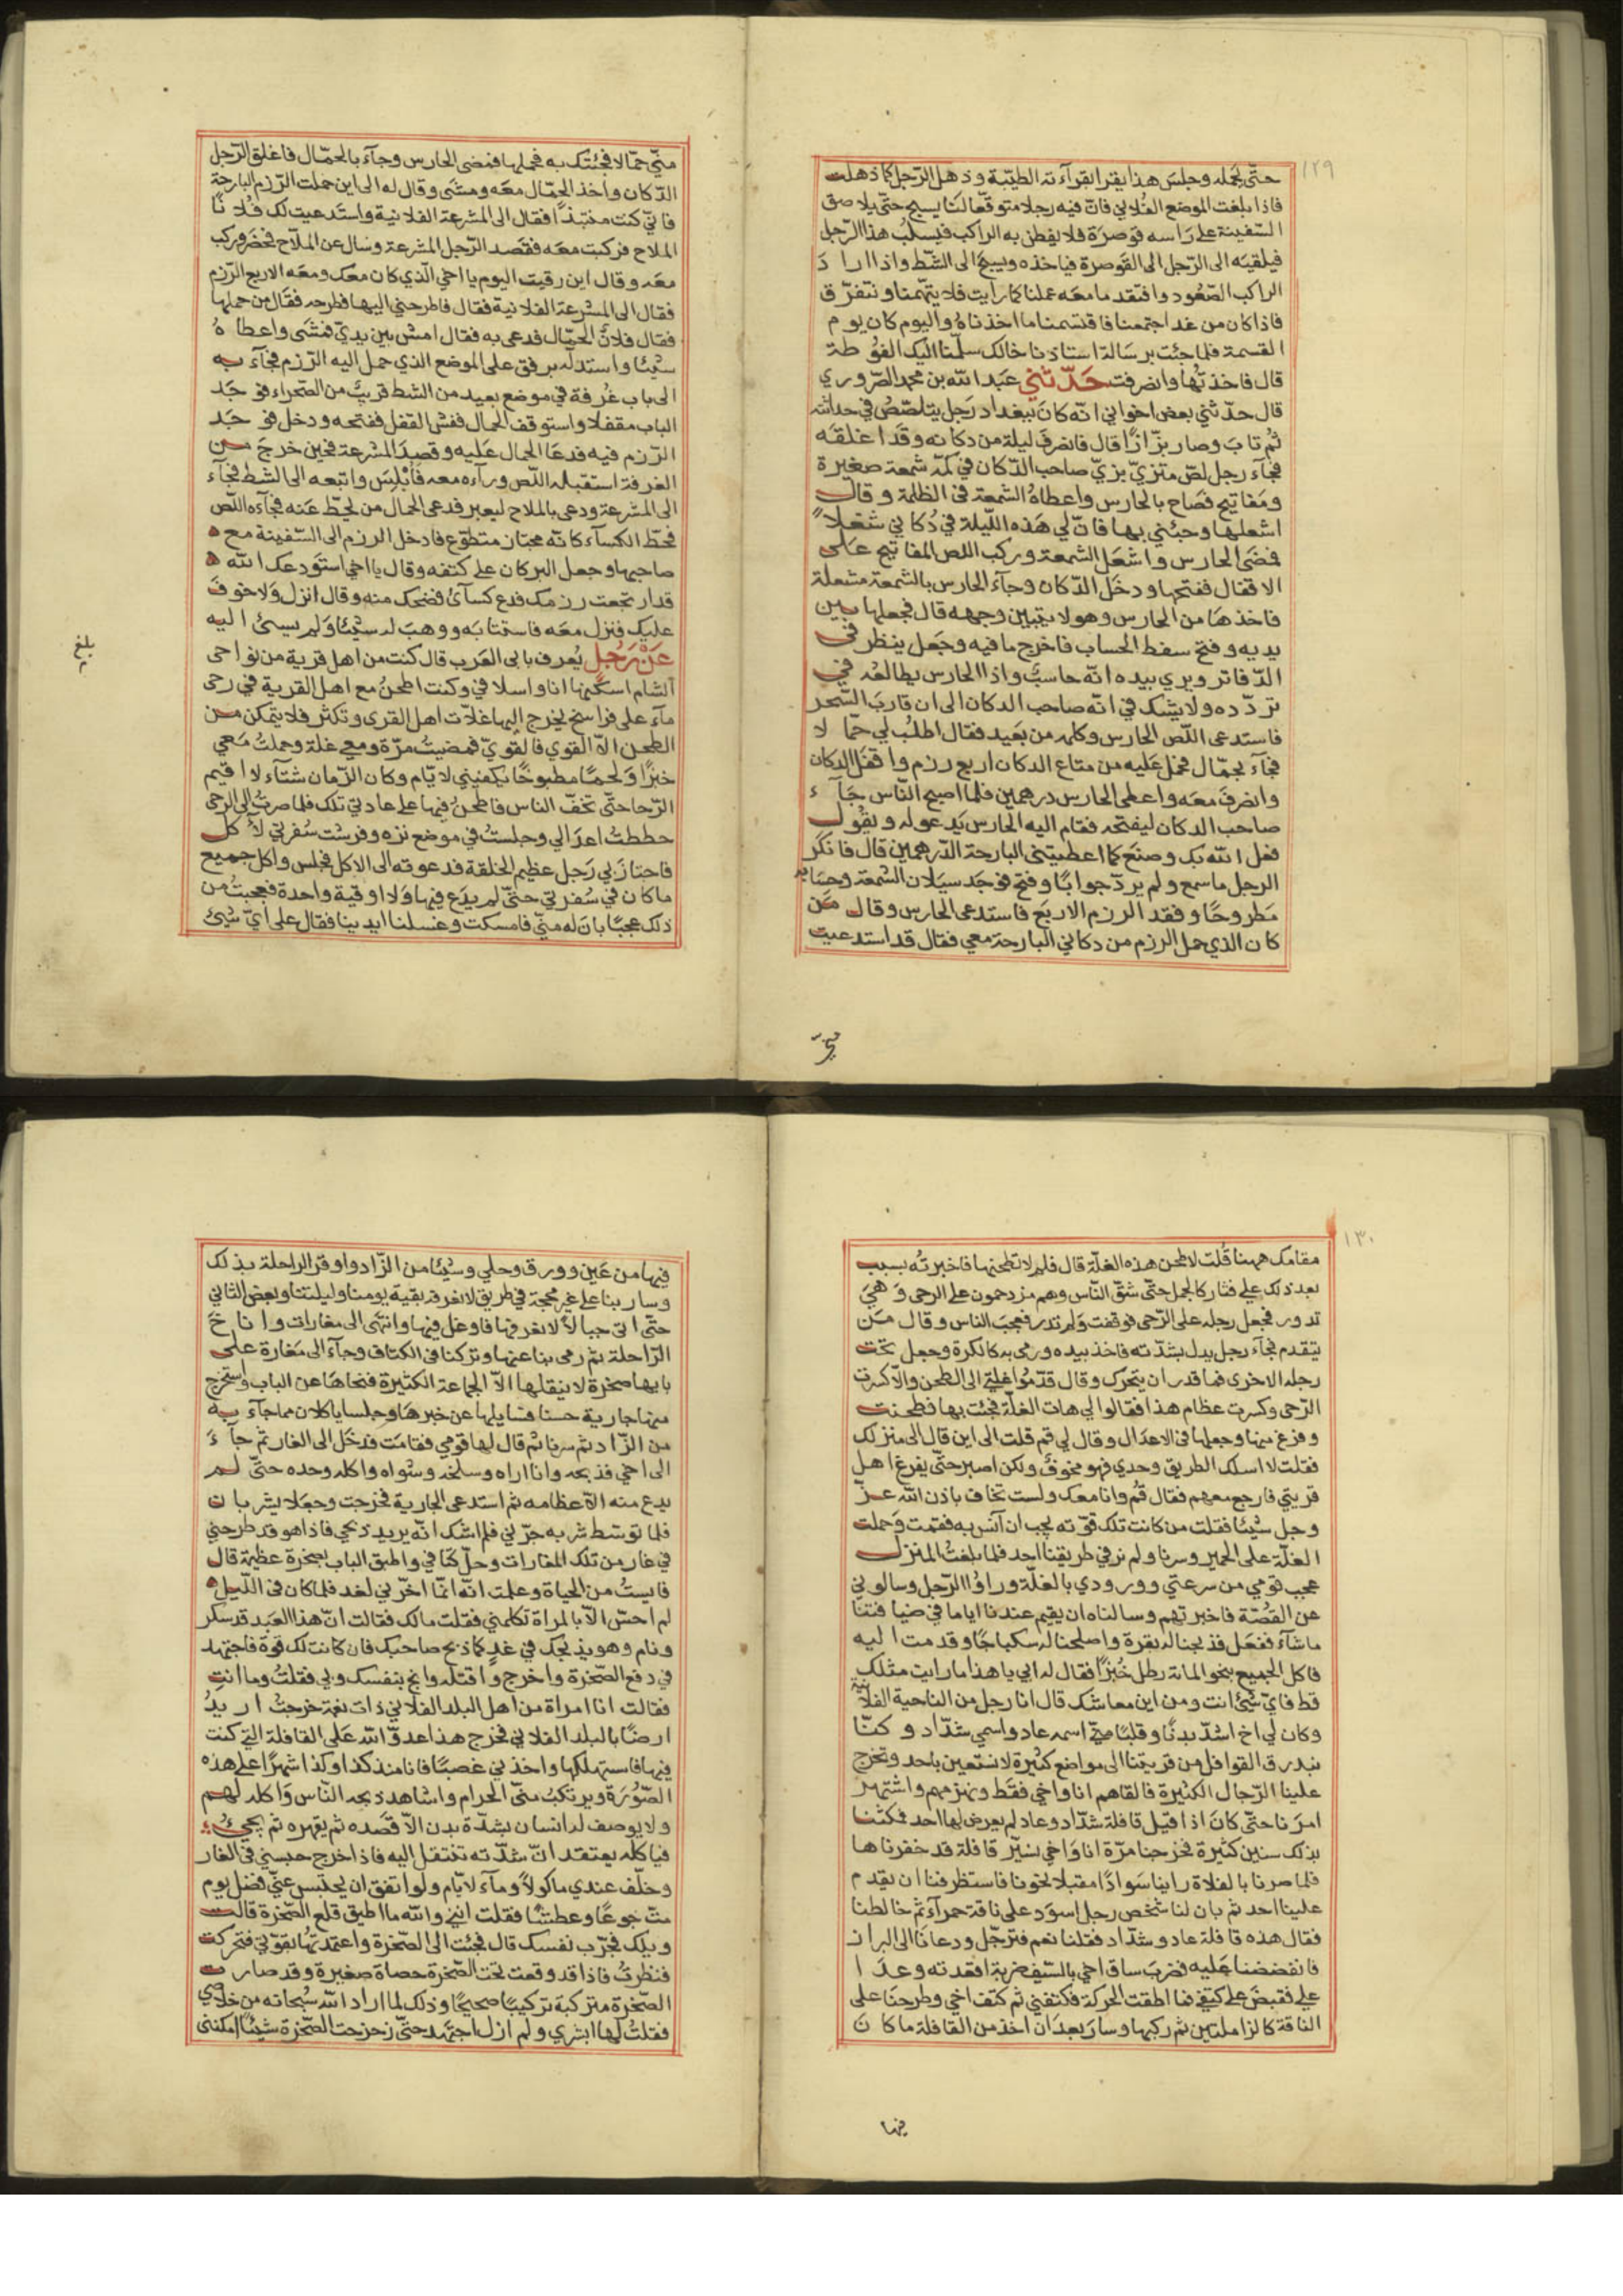 ١٢٩
حتّى يحمله وجلس هذا يقرا بقرآءته الطيّبة وذهل الرّجل كما ذهلت
فاذا بلغت الموضع الفُلاني فانّ فيه رجلا متوقّعا لنا يسبح حتى يلاصق
السّفينة على رَاسه قوصرَة فلا يفطن به الراكب فيسلبُ هذا الرّجل
فيلقيَه الى الرّجل الى القَوصرة فياخذه ويسبحَ الى الشّط واذا ارادَ
الراكب الصّعُود وافتقد ما معَه عملنا كما رايت فلا يتّهمنا ونتفرّق
فاذا كان من غد اجتمعنا فاقتسمنا ما اخذناهُ واليوم كان يوم
القسمة فلما جئت برسَالة استاذنا خالك سلّمنا اليك الفُوطة
قال فاخذتُها وانصرفت حَدّثني عبَد الله بن محمد الصّروري
قال حدّثني بعض اخواني انّه كانَ ببغداد رَجل يتلصّصُ في حداثته
ثمُ تابَ وصار بزّازًا قال فانصرفَ ليلة من دكانه وقَد اغلقَه
فجَآء رجل لصّ متزيّ بزيّ صاحب الدّكان في كمّه شمعة صغيرة
ومَفاتيح فصَاح بالحارس واعطاهُ الشمعة في الظلمة وقال
اشعلها وجئني بها فانّ لي هَذه اللّيلة في دُكاني شغلاً
فمضَى الحارس واشعَل الشمعة وركب اللص المفاتيح عَلى
الاقفال ففتحها ودخَل الدّكان وجآءَ الحارس بالشّمعة مشعلة
فاخذهَا من الحارس وهو لا يتبيّن وجهه قال فجعلها بين
يديه وفتح سفط الحساب فاخرج ما فيه وجَعل ينظر في
الدّفاتر ويري بيده انّه حاسبٌ واذا الحارس يطالعُه في
تردّده ولا يشك في انّه صاحب الدكان الى ان قاربَ السّحر
فاستدعى اللّص الحارس وكلمه من بعَيد فقال اطلُب لي حمّالا
فجآءَ بحمّال فحمل عَليه من متاع الدكان اربع رزم واقفَل الدكان
وانصرفَ معَه واعطى الحارس درهمين فلما اصبح النّاس جَآءَ
صاحب الدكان ليفتحه فقام اليه الحارس يَدعو له ويقُول
فعل الله بك وصنَع كما اعطيتني البارحة الدّرهمين قال فانكَر
الرجل ما سمع ولم يردّ جوابًا وفتح فوَجَد سيَلان الشمعة وحسَابه
مَطروحًا وفقد الرزم الاربَع فاستدعى الحارس وقال مَن
كان الذي حمل الرزم من دكاني البارحة معي فقال قد استدعيت
منّي
منّي حمّالا فجئتك به فحملها فمضى الحارس وجآء بالحمّال فاغلق الرّجل
الدّكان واخذ الحمّال معَه ومشَى وقال له الى اين حملت الرّزم البارحة
فانّي كنت منتبذًا فقال الى المشرعة الفلانية واستدعيت لك فُلانًا
الملاح فركبت معَه فقصَد الرّجل المشرعة وسال عن الملّاح فحضَر وركب
معَه وقال اين رقيت اليوم يا اخي الّذي كان معَك ومعَه الاربع الرّزم
فقال الى المشرعَة الفلانية فقال فاطرحني اليها فطرحه فقال من حملها
فقال فلانٌ الحمّال فدعى به فقال امش بين يديّ فمشَى واعطاهُ
شيئا واستدلّه برفق على الموضع الذي حمل اليه الرّزم فجآءَ به
الى باب غُرفة في موضع بعيد من الشط قريبٌ من الصّحراء فوجَد
الباب مقفلا واستوقف الحمال ففش القفل ففتحه ودخل فوجَد
الرّزم فيه فدعَا الحمال عَليه وقصدَ المشرعة فحين خرجَ من
الغرفة استقبله اللّص ورآءَه معه فَأَبْلسَ واتبعه الى الشط فجآء
الى المشرعة ودعى بالملاح ليعبر فدعى الحمال من يحَطّ عَنه فجآءَه اللّص
فحَطّ الكسآء كانه مجتاز متطوّع فادخل الرزم الى السّفينة مع
صاحبها وجعل البركان على كتفه وقال يا اخي استَودعك الله
قد ارتجعت رزمك فدع كسآئ فضحك منه وقال انزل وَلا خوفَ
عليك فنزل معَه فاستتابَه ووهبَ له شيئا وَلم يسئ اليه
عَنْ رَجُل يُعرف بابى العَرب قال كنت من اهل قرية من نواحى
الشام اسكنها انا واسلافي وكنت اطحنُ مع اهل القرية في رحى
مآء على فراسخ يخرج اليها غلّات اهل القرى وتكثر فلا يتمكن من
الطحن الّا القوي فالقويّ فمضيتُ مرّة ومعي غلة وحملتُ مَعي
خبزًا وَلحمًا مطبوخًا يكفيني لايّام وكان الزّمان شتآء لاقيم
الرّحا حتّى تخفّ الناس فاطحنُ فيها على عادتي تلك فلما صرتُ الى الرّحى
حططتُ اعدَالي وجلستُ في موضع نزه وفرشت سُفرتي لآكل
فاجتازَ بي رَجل عظيم الخلقة فدعوته الى الاكل فجَلس واكل جميع
ما كان في سُفرتي حتّى لم يدَع فيها وَلا اوقية واحدة فعجبتُ من
ذلك عجبًا بانَ له منّي فامسكت وغسلنا ايدينا فقال على ايّ شيئ
بلغ
١٣٠
مقامك ههنا قُلت لاطحن هذه الغلّة قال فلم لا تطحنها فاخبرتُه بسبب
بعد ذلك علي فثار كالجمل حتّى شقّ النّاس وهم مزدحمون على الرحى وَهيَ
تدور فجعل رجله على الرّحى فوقفت وَلم تدر فعجبَ الناس وقال مَن
يتقدم فجآءَ رجل يدل بشدّته فاخذ بيده ورمى به كالكرة وجعل تحت
رجله الاخرى فما قدر ان يتحرّك وقال قدّمُوا غلّتي الى الطحن والّا كسرت
الرّحى وكسرت عظام هذا فقالوا لي هات الغلّة فجئت بها فطحنت
وفرغ منها وجعلها في الاعدَال وقال لي قم قلت الى اين قال الى منزلك
فقلت لا اسلك الطريق وحدي فهو مخوفٌ ولكن اصبر حتّى يفرغ اهل
قريتي فارجع معهم فقال قُم وانا معك ولست تخاف باذن الله عزّ
وجل شيئا فقلت من كانت تلك قوّته يجب ان آنسَ به فقمت وَحملت
الغلّة على الحمير وسرنا ولم نر في طريقنا احد فلما بلغتُ المنزل
عجب قومي من سرعتي وورودي بالغلّة وراوُا الرّجل وسالوني
عن القصّة فاخبرتهم وسالناه ان يقيم عندنا اياما في ضيافتنا
ما شآء ففعَل فذبحنا له بقرة واصلحنا له سكباجًا وقدمت اليه
فاكل الجميع بنحو المائة رطل خُبزًا فقال له ابي يا هذا ما رايت مثلك
قط فايّ شيئ انت ومن اين معاشك قال انا رجل من الناحية الفلانية
وكان لي اخ اشدّ بدنًا وقلبًا منّي اسمه عاد واسمي شدّاد وكنّا
نبدرق القوافل من قريتنا الى مواضع كثيرة لا نستعين باحد وتخرج
علينا الرّجال الكثيرة فالقاهم انا واخي فقَط ونهزمهم واشتهر
امرنا حتّى كانَ اذا قيل قافلة شدّاد وعاد لم يعرض لها احد فمكثنا
بذلك سنين كثيرة فخرجنا مرّة انا وَاخي نسَيّر قافلة قد خفرناها
فلما صرنا بالفلاة راينا سَوادًا مقبلا نحونا فاستظرفنا ان يقدم
علينا احد ثم بان لنا شخص رجل اسوَد على ناقة حمرآء ثم خالطنا
فقال هذه قافلة عاد وشدّاد فقلنا نعم فترجّل ودعانا الى البراز
فانقضضنا عَليه فضربَ ساق اخي بالسّيف ضربة اقعدته وعدَا
عليّ فقبضَ على كتفي فما اطقت الحركة فكتفني ثم كتف اخي وطرحنا على
الناقة كالزاملتين ثم ركبها وسارَ بعدَ ان اخذ من القافلة ما كانَ
فيها
فيها من عَين وورق وحلي وشيئا من الزّاد واوقر الراحلة بذلك
وسار بنا على غير محجة في طريق لا نعرفه بقية يومنا وليلتنا وبعض الثاني
حتّى اتى جبالاً لا نعرفها فاوغل فيها وانتهى الى مغارات واناخَ
الرّاحلة ثم رمى بنا عنها وتركنا في الكتاف وجآء الى مَغارة على
بابها صخرة لا ينقلها الّا الجماعة الكثيرة فنحاهَا عن الباب واستخرج
منها جارية حسنا فسايلها عن خبرهَا وجلسا ياكلان مما جآءَ به
من الزّاد ثم شربا ثم قال لها قومي فقامَت فدخَل الى الغار ثم جآءَ
الى اخي فذبحه وانا اراه وسلخه وشواه واكله وحده حتّى لم
يدع منه الّا عظامه ثم استدعى الجارية فخرجت وجعَلا يشربان
فلما توسّط شربه جرّني فلم اشك انّه يريد ذبحي فاذا هو قد طرحني
في غار من تلك المغارات وحلّ كتافي واطبق الباب بصخرة عظيمة قال
فايستُ من الحياة وعلمت انّه انّما ادّخرني لغد فلما كان في اللّيل
لم احسّ الّا بالمراة تكلمني فقلت مالك فقالت انّ هذا العبَد قد سكر
ونام وهو يذبحك في غدٍ كما ذبح صاحبك فان كانت لك قوّة فاجتهد
في دفع الصّخرة واخرج واقتله وانج بنفسك وبي فقلتُ وما انتِ
فقالت انا امراة من اهل البلد الفلاني ذات نعمة خرجتُ اريدُ
ارضًا بالبلد الفلاني فخرج هذا عدوّ الله عَلى القافلة التي كنت
فيها فاستهلكها واخذني غصبًا فانا منذ كذا وكذا شهرًا على هذه
الصّوُرَة ويرتكبُ منّي الحرام واشاهد ذبحه النّاس وَاكله لهم
ولا يوصف له انسان بشدّة بدن الّا قصَده ثم يقهره ثم يجيئُ به
فياكله يعتقد انّ شدّته تنتقل اليه فاذا خرج حبسني في الغار
وخلّف عندي ماكولاً ومآء لايّام ولو اتفق ان يحتبس عنّي فضل يوم
متّ جوعًا وعطشًا فقلت انني والله ما اطيق قلع الصّخرة قالت
ويلك فجرّب نفسك قال فجئت الى الصّخرة واعتمدتها بقوّتي فتحركت
فنظرتُ فاذا قد وقعت تحت الصّخرة حصاة صغيرة وقد صارت
الصّخرة متركبة تركيبًا صحيحًا وذلك لما اراد الله سُبحانه من خلاصي
فقلتُ لها ابشري ولم ازل اجتهد حتّى زحزحت الصّخرة شيئًا امكنني